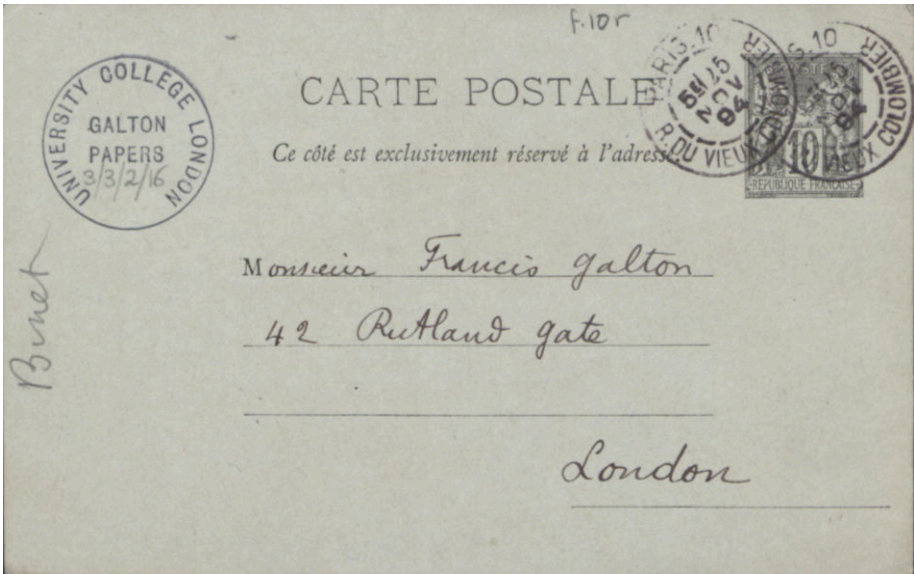 F.10r
UNIVERSITY COLLEGE LONDON
GALTON
PAPERS
3/3/2/16
CARTE POSTALE
Ce côté est exclusivement réservé à l'adresse.
PARIS.10
5E
25
NOV
94
R. DU VIEUX COLOMBIER
S.10
25
NOV
94
VIEUX COLOMBIER
10
REPUBLIQUE FRANCAISE
Binet
Monsieur Francis Galton
42 Rutland Gate
London